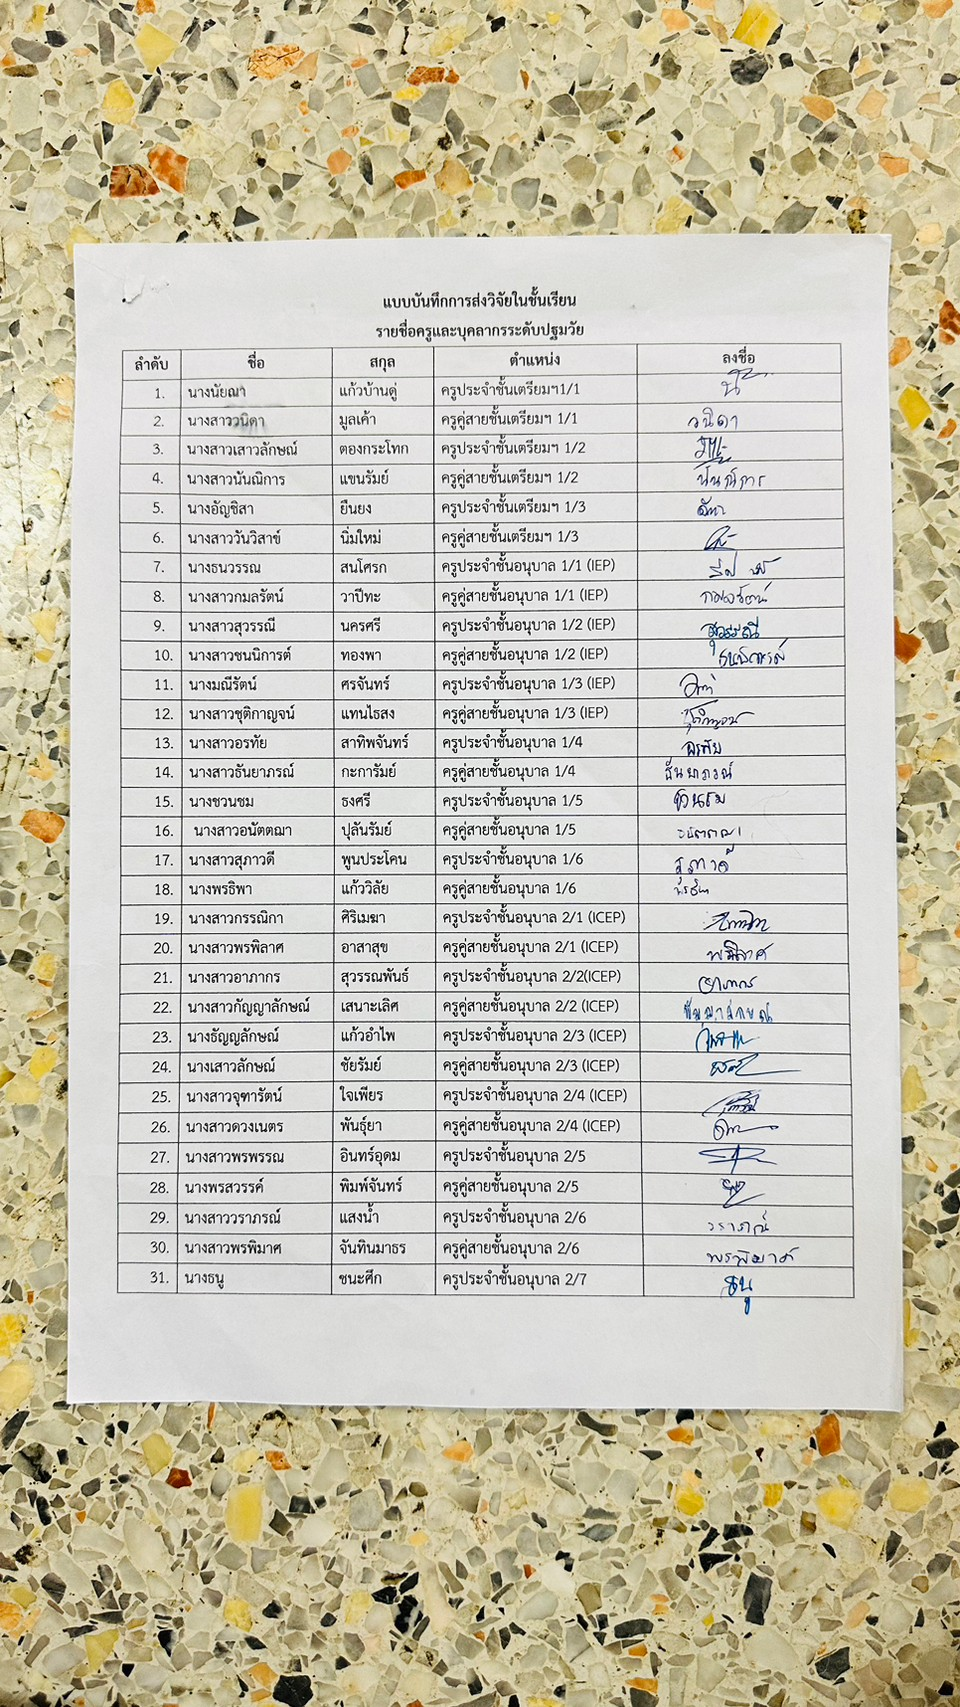 แบบบันทึกการส่งวิจัยในชั้นเรียน
รายชื่อครูและบุคลากรระดับปฐมวัย
ลำดับ ชื่อ สกุล ตำแหน่ง ลงชื่อ
1. นางนัยณา แก้วบ้านดู่ ครูประจำชั้นเตรียมฯ1/1
2. นางสาววนิดา มูลเค้า ครูคู่สายชั้นเตรียมฯ 1/1 วนิดา
3. นางสาวเสาวลักษณ์ ตองกระโทก ครูประจำชั้นเตรียมฯ 1/2
4. นางสาวนันณิการ แขนรัมย์ ครูคู่สายชั้นเตรียมฯ 1/2 นันณิการ
5. นางอัญชิสา ยืนยง ครูประจำชั้นเตรียมฯ 1/3
6. นางสาววันวิสาข์ นิ่มใหม่ ครูคู่สายชั้นเตรียมฯ 1/3
7. นางธนวรรณ สนโศรก ครูประจำชั้นอนุบาล 1/1 (IEP)
8. นางสาวกมลรัตน์ วาปีทะ ครูคู่สายชั้นอนุบาล 1/1 (IEP) กมลรัตน์
9. นางสาวสุวรรณี นครศรี ครูประจำชั้นอนุบาล 1/2 (IEP) สุวรรณี
10. นางสาวชนนิการต์ ทองพา ครูคู่สายชั้นอนุบาล 1/2 (IEP)
11. นางมณีรัตน์ ศรจันทร์ ครูประจำชั้นอนุบาล 1/3 (IEP)
12. นางสาวชุติกาญจน์ แทนไธสง ครูคู่สายชั้นอนุบาล 1/3 (IEP)
13. นางสาวอรทัย สาทิพจันทร์ ครูประจำชั้นอนุบาล 1/4 อรทัย
14. นางสาวธันยาภรณ์ กะการัมย์ ครูคู่สายชั้นอนุบาล 1/4 ธันยาภรณ์
15. นางชวนชม ธงศรี ครูประจำชั้นอนุบาล 1/5 ชวนชม
16. นางสาวอนัตตฌา ปุลันรัมย์ ครูคู่สายชั้นอนุบาล 1/5
17. นางสาวสุภาวดี พูนประโคน ครูประจำชั้นอนุบาล 1/6
18. นางพรธิพา แก้ววิลัย ครูคู่สายชั้นอนุบาล 1/6
19. นางสาวกรรณิกา ศิริเมฆา ครูประจำชั้นอนุบาล 2/1 (ICEP)
20. นางสาวพรพิลาศ อาสาสุข ครูคู่สายชั้นอนุบาล 2/1 (ICEP)
21. นางสาวอาภากร สุวรรณพันธ์ ครูประจำชั้นอนุบาล 2/2(ICEP) อาภากร
22. นางสาวกัญญาลักษณ์ เสนาะเลิศ ครูคู่สายชั้นอนุบาล 2/2 (ICEP) กัญญาลักษณ์
23. นางธัญญลักษณ์ แก้วอำไพ ครูประจำชั้นอนุบาล 2/3 (ICEP)
24. นางเสาวลักษณ์ ชัยรัมย์ ครูคู่สายชั้นอนุบาล 2/3 (ICEP)
25. นางสาวจุฑารัตน์ ใจเพียร ครูประจำชั้นอนุบาล 2/4 (ICEP)
26. นางสาวดวงเนตร พันธุ์ยา ครูคู่สายชั้นอนุบาล 2/4 (ICEP)
27. นางสาวพรพรรณ อินทร์อุดม ครูประจำชั้นอนุบาล 2/5
28. นางพรสวรรค์ พิมพ์จันทร์ ครูคู่สายชั้นอนุบาล 2/5
29. นางสาววราภรณ์ แสงน้ำ ครูประจำชั้นอนุบาล 2/6 วราภรณ์
30. นางสาวพรพิมาศ จันทินมาธร ครูคู่สายชั้นอนุบาล 2/6 พรพิมาศ
31. นางธนู ชนะศึก ครูประจำชั้นอนุบาล 2/7 ธนู